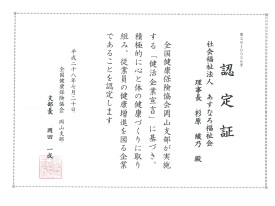 認定証
社会福祉法人 あすなろ福祉会
理事長 杉原 繊乃 殿
全国健康保険協会岡山支部が実施
する「健活企業宣言」に基づき、
積極的に心と体の健康づくりに取り
組み、従業員の健康増進を図る企業
であることを認定します
平成二十八年七月二十日
全国健康保険協会 岡山支部
支部長 岡田 一成